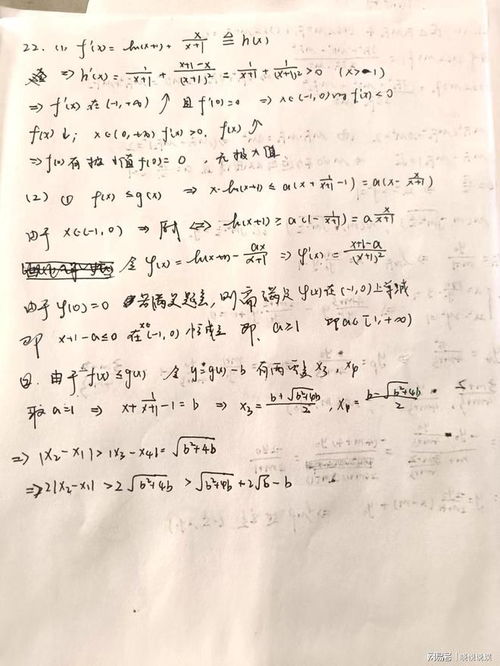 22. (1) f'(x) = ln(x+1) + x/(x+1) ≜ h(x)
⇒ h'(x) = 1/(x+1) + (x+1-x)/(x+1)² = 1/(x+1) + 1/(x+1)² > 0 (x>-1)
⇒ f'(x) 在 (-1,+∞) ↑ 且 f'(0)=0 ⇒ x∈(-1,0) f'(x)<0
f(x)↓; x∈(0,+∞) f'(x)>0, f(x)↑
⇒ f(x)有极小值 f(0)=0 , 无极大值
(2) ① f(x) ≤ g(x) ⇒ x·ln(x+1) ≤ a(x + 1/(x+1) - 1) = a(x - x/(x+1))
由于 x∈(-1,0) ⇒ ⇔ ln(x+1) ≥ a(1 - 1/(x+1)) = a x/(x+1)
令 φ(x) = ln(x+1) - ax/(x+1) ⇒ φ'(x) = (x+1-a)/(x+1)²
由于 φ(0)=0 若满足题意, 则需满足 φ(x)在(-1,0)上单减
即 x+1-a≤0 在 x∈(-1,0) 恒成立 即 a≥1 即 a∈[1,+∞)
②. 由于 f(x) ≤ g(x) 令 y=g(x)-b 有两零点 x₃, x₄
取 a=1 ⇒ x + 1/(x+1) - 1 = b ⇒ x₃ = (b+√(b²+4b))/2 , x₄ = (b-√(b²+4b))/2
⇒ |x₂-x₁| > |x₃-x₄| = √(b²+4b)
⇒ 2|x₂-x₁| > 2√(b²+4b) > √(b²+4b) + 2√b - b
网易号 |